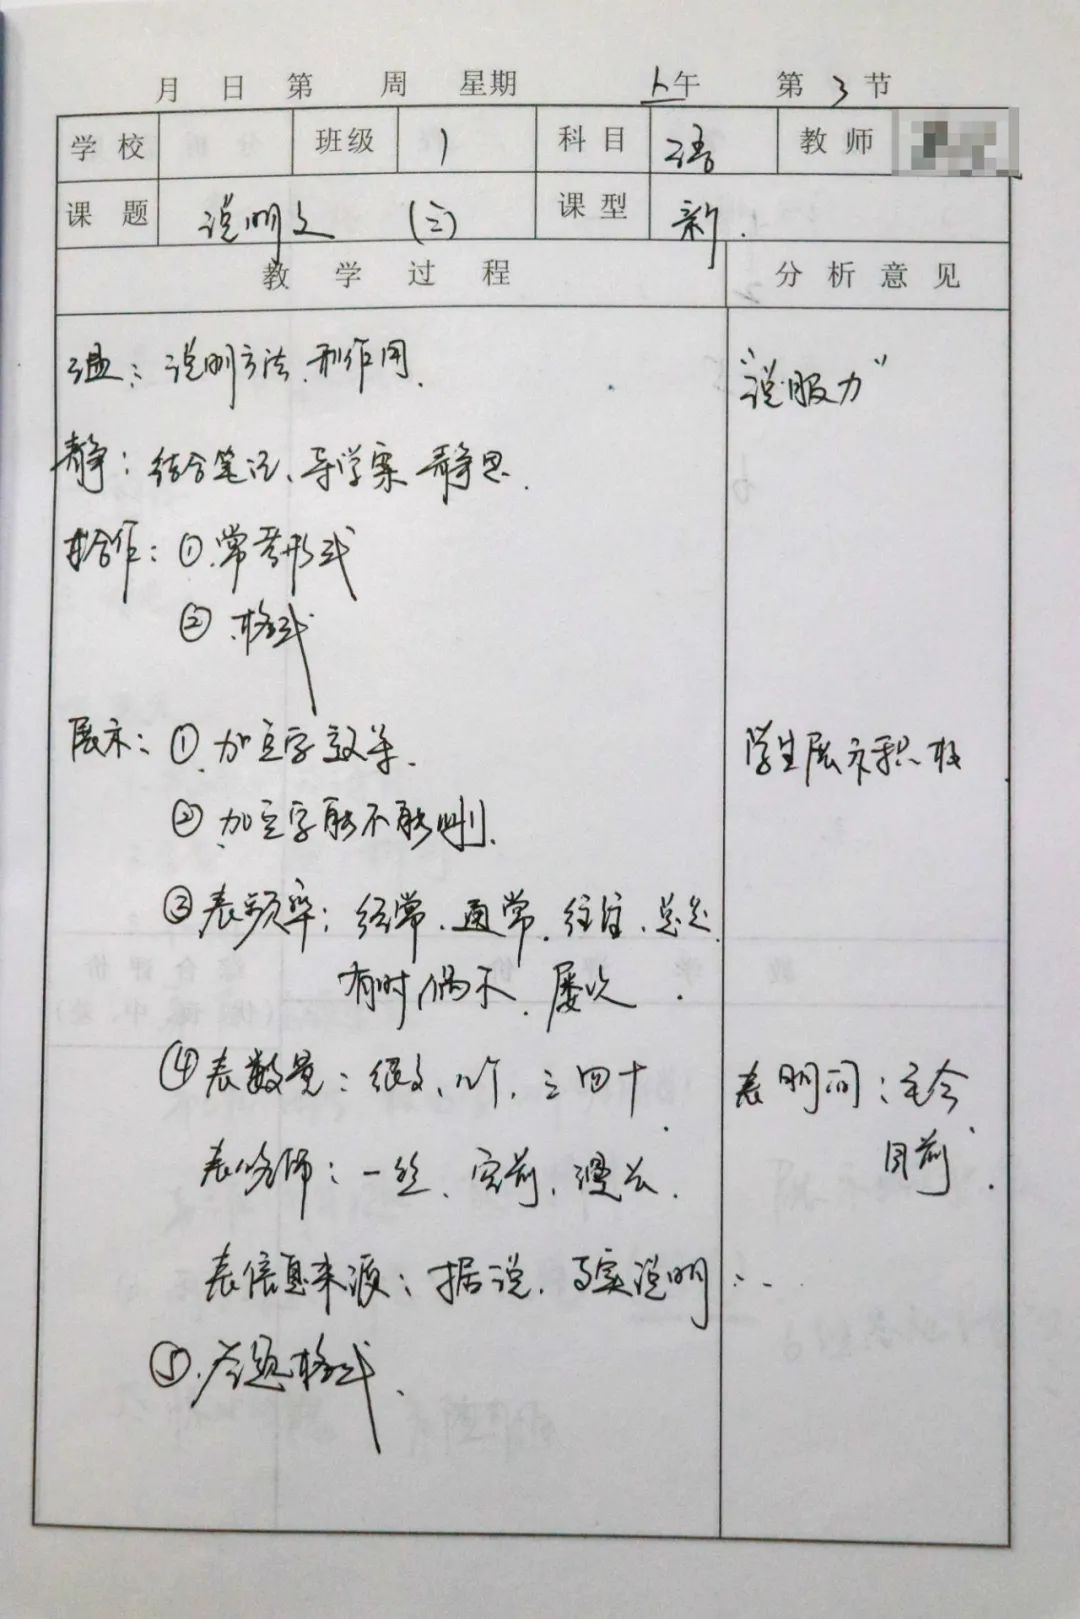 月 日 第 周 星期 上午 第 3 节
学校 班级 1 科目 语 教师
课题 说明文 (三) 课型 新.
教学过程 分析意见
温: 说明方法 和作用. “说服力”
静: 结合笔记、导学案 静思.
合作: ① 常考形式
② 格式
展示: ① 加点字效果. 学生展示积极
② 加点字能不能删.
③ 表频率: 经常、通常、往往、总是
有时 偶尔、屡次.
④ 表数量: 很多、几个、三四十 表时间: 至今
表修饰: 一些、空前、漫长. 目前.
表信息来源: 据说、事实说明...
⑤ 答题格式.